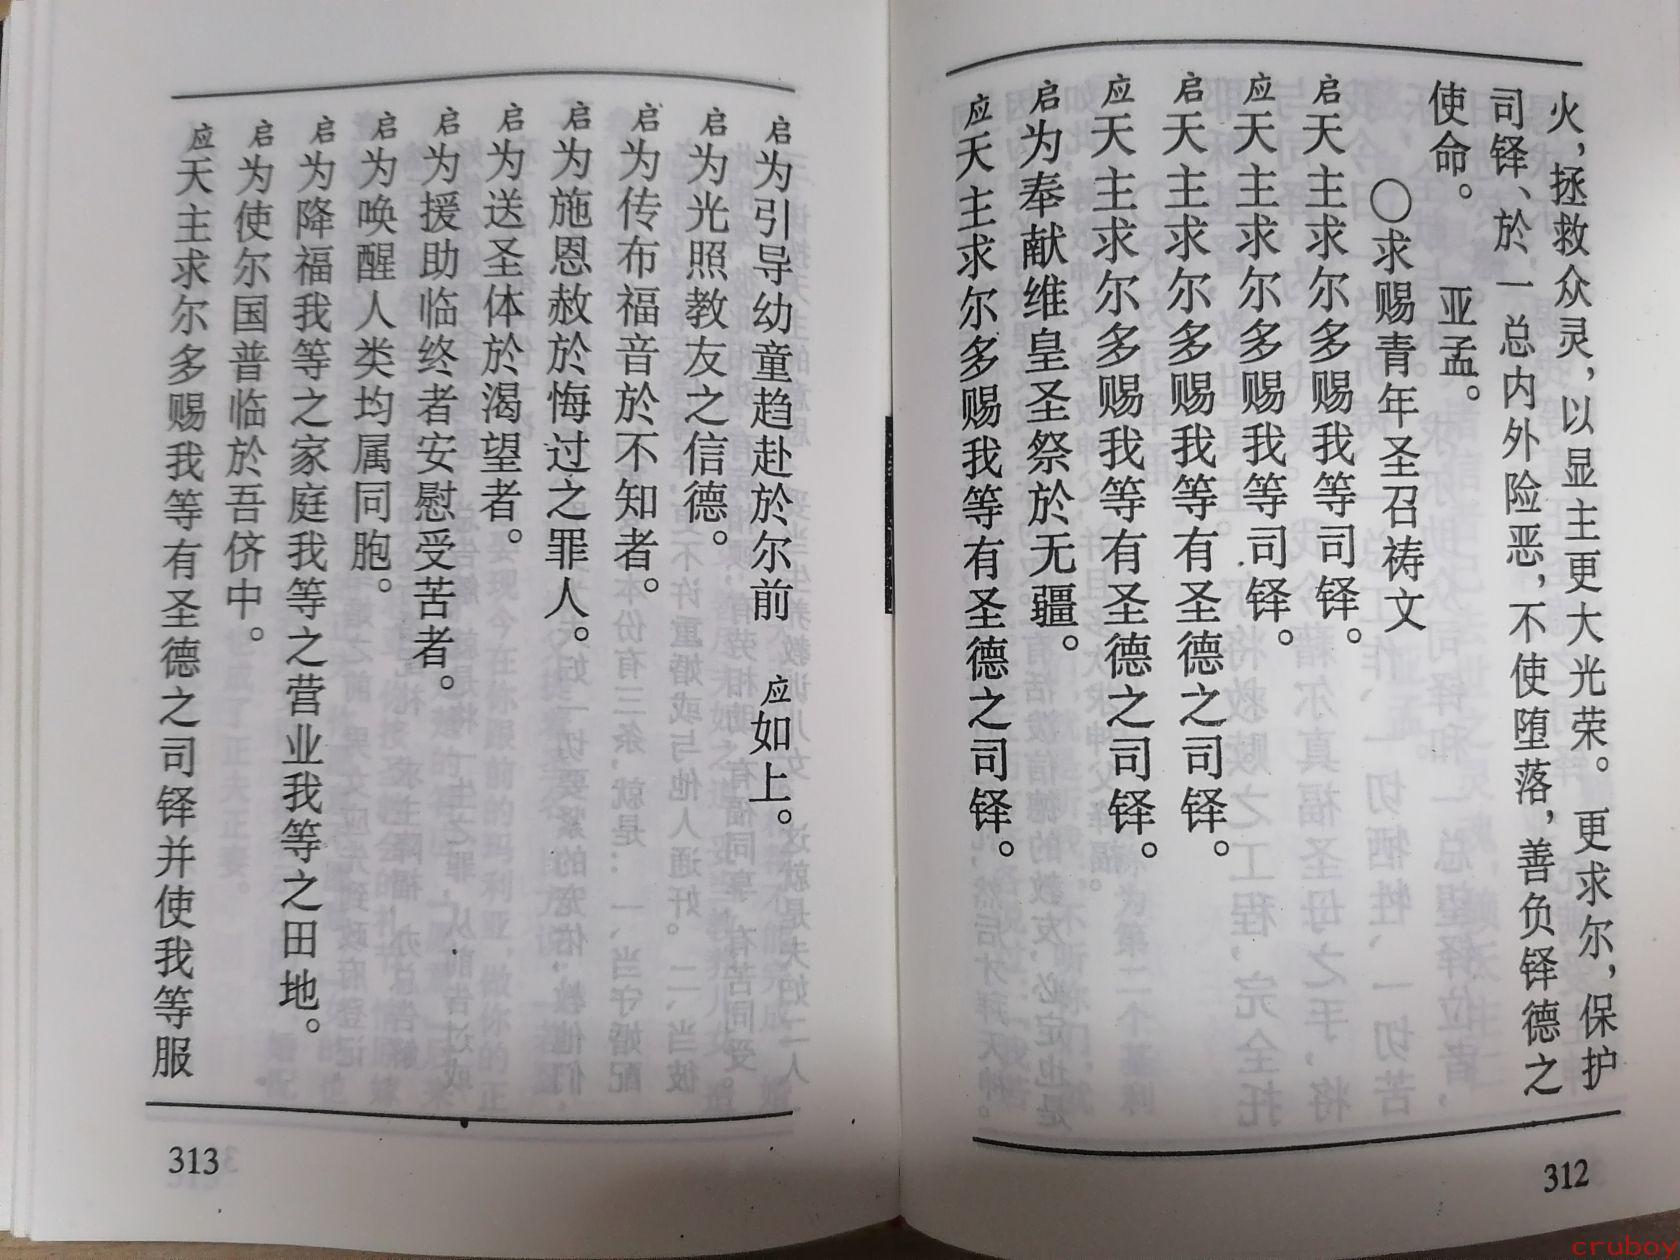 火，拯救众灵，以显主更大光荣。更求尔，保护
司铎、於一总内外险恶，不使堕落，善负铎德之
使命。 亚孟。
〇求赐青年圣召祷文
启天主求尔多赐我等司铎。
应天主求尔多赐我等司铎。
启天主求尔多赐我等有圣德之司铎。
应天主求尔多赐我等有圣德之司铎。
启为奉献维皇圣祭於无疆。
应天主求尔多赐我等有圣德之司铎。
312
启为引导幼童趋赴於尔前 应如上。
启为光照教友之信德。
启为传布福音於不知者。
启为施恩赦於悔过之罪人。
启为送圣体於渴望者。
启为援助临终者安慰受苦者。
启为唤醒人类均属同胞。
启为降福我等之家庭我等之营业我等之田地。
启为使尔国普临於吾侪中。
应天主求尔多赐我等有圣德之司铎并使我等服
313
cruboy